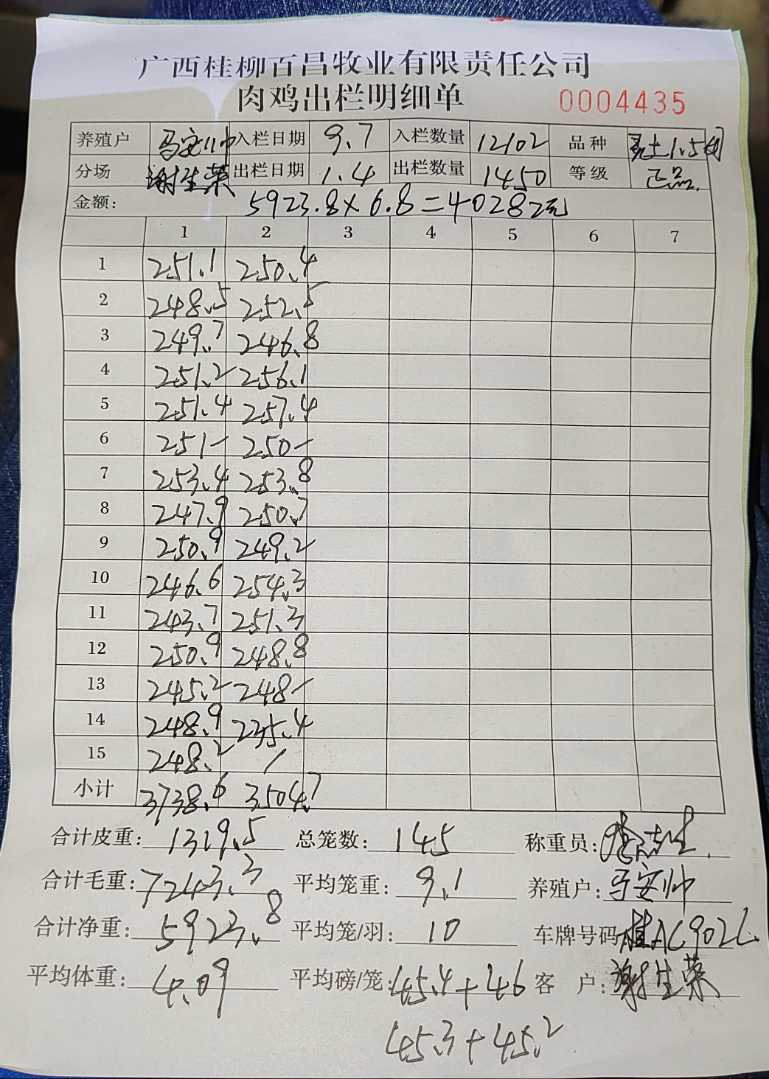 广西桂柳百昌牧业有限责任公司
肉鸡出栏明细单 0004435
养殖户 马安帅 入栏日期 9.7 入栏数量 12102 品种
分场 谢生荣 出栏日期 1.4 出栏数量 1450 等级 正品.
金额: 5923.8×6.8=40282元
1 2 3 4 5 6 7
1 251.1 250.4
2 248.5 252.5
3 249.7 246.8
4 251.2 256.1
5 251.4 257.4
6 251- 250-
7 253.4 253.8
8 247.9 250.7
9 250.9 249.2
10 246.6 254.3
11 243.7 251.3
12 250.9 248.8
13 245.2 248-
14 248.9 235.4
15 248.2 /
小计 3738.6 3504.7
合计皮重: 1319.5 总笼数: 145 称重员:
合计毛重: 7243.3 平均笼重: 9.1 养殖户: 马安帅
合计净重: 5923.8 平均笼/羽: 10 车牌号码
平均体重: 4.09 平均磅/笼: 45.4+46 客 户: 谢生荣
45.3+45.2